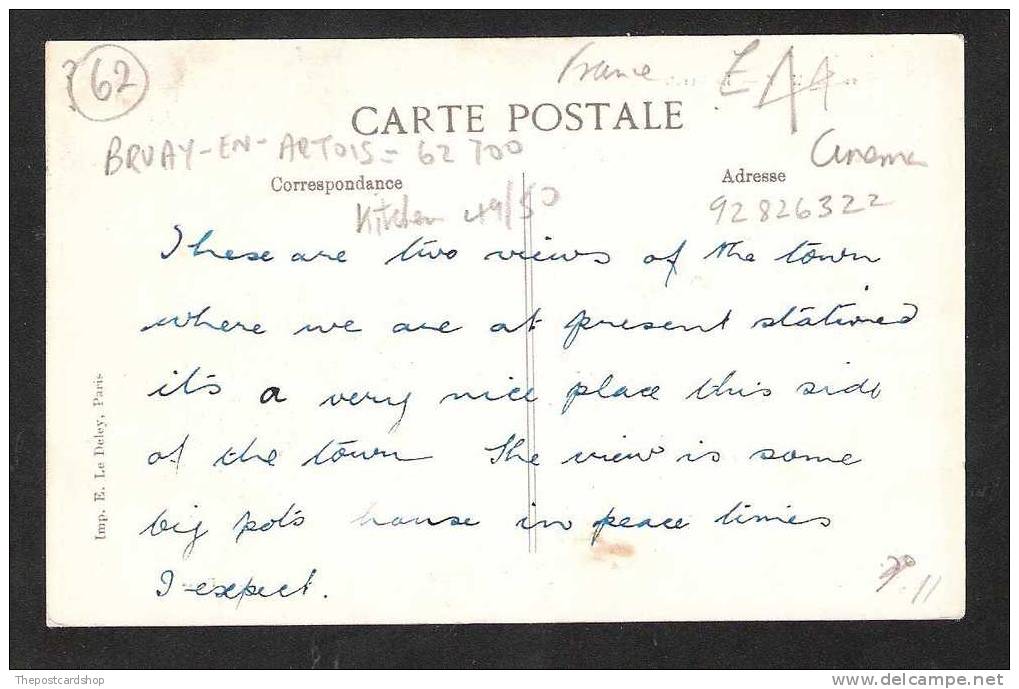 62
France
CARTE POSTALE
BRUAY-EN-ARTOIS = 62 700
Cinema
Correspondance
Adresse
Kitchen 49/50
92826322
These are two views of the town
where we are at present stationed
it's a very nice place this side
of the town The view is some
big pot's house in peace times
I expect.
Imp. E. Le Deley, Paris
Thepostcardshop
delcampe.net